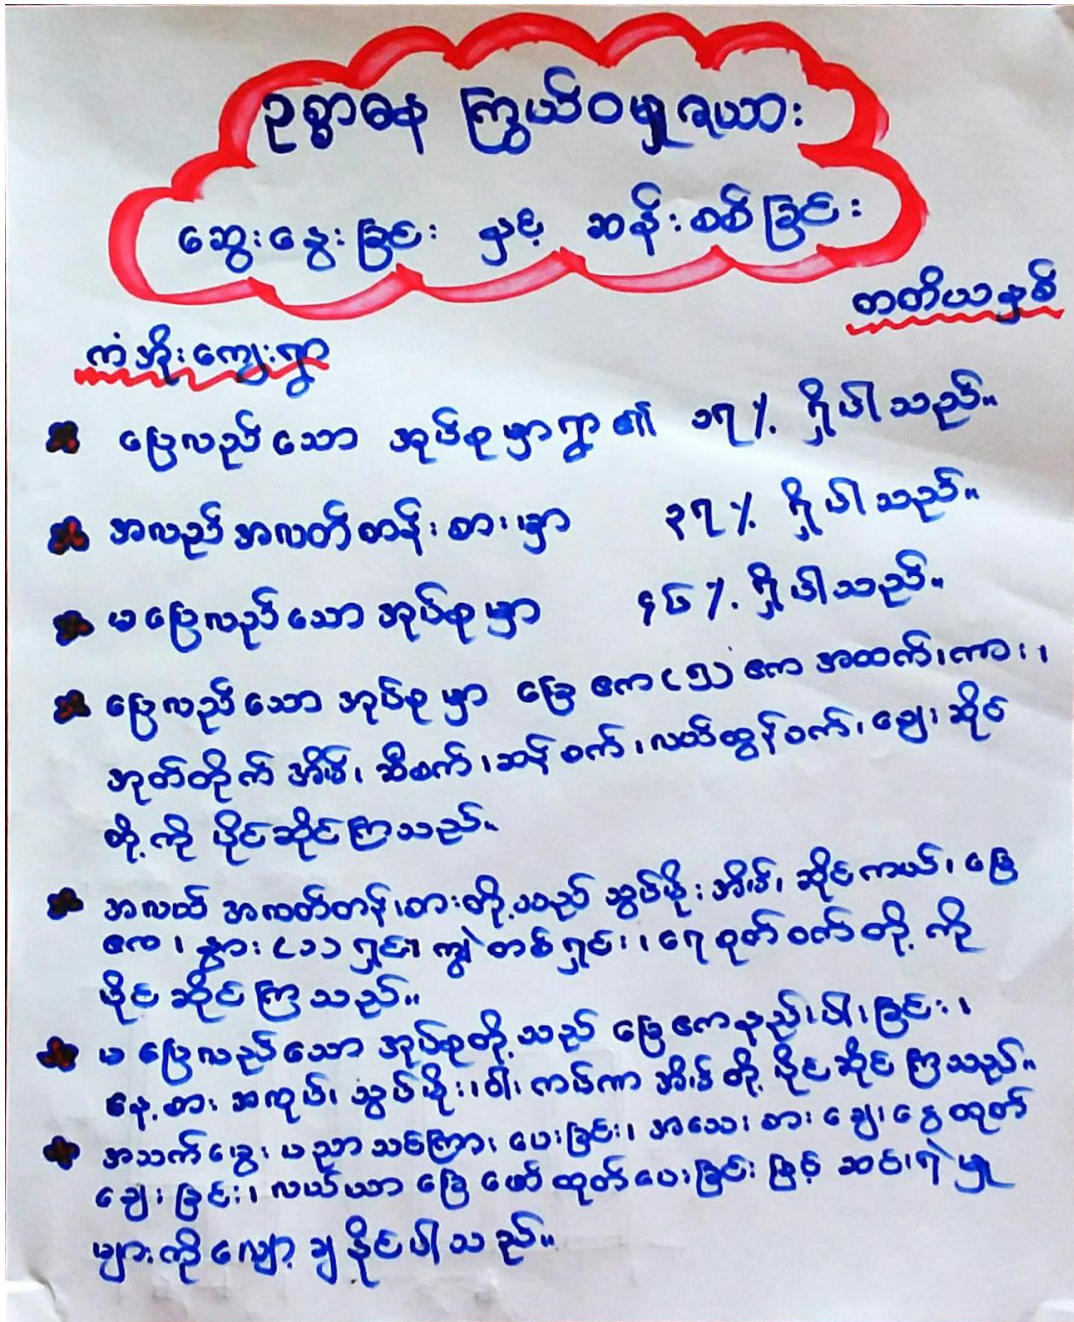 ဥစ္စာဓန ကြွယ်ဝမှုဇယား
ဆွေးနွေးခြင်း နှင့် ဆန်းစစ်ခြင်း
တတိယနှစ်
ကံအိုးကျေးရွာ
ပြေလည်သော အုပ်စုမှာရွာ၏ ၁၇% ရှိပါသည်။
အလည်အလတ်တန်းစားမှာ ၃၇% ရှိပါသည်။
မပြေလည်သော အုပ်စုမှာ ၄၆% ရှိပါသည်။
ပြေလည်သော အုပ်စုမှာ မြေဧက (၅) ဧက အထက်၊ကား၊
အုတ်တိုက် အိမ်၊ ဆီစက်၊ဆန်စက်၊လယ်ထွန်စက်၊ ဈေးဆိုင်
တို့ကို ပိုင်ဆိုင်ကြသည်။
အလယ် အလတ်တန်းစားတို့သည် သွပ်မိုးအိမ်၊ ဆိုင်ကယ်၊ မြေ
ဧက၊ နွား (၁) ရှင်း၊ ကျွဲတစ်ရှင်း၊ ရေစုတ်စက်တို့ ကို
ပိုင်ဆိုင်ကြသည်။
မပြေလည်သော အုပ်စုတို့သည် မြေဧကနည်းပါးခြင်း၊
နေ့စား အလုပ်၊ သွပ်မိုး၊ဝါးကပ်ကာ အိမ်တို့ ပိုင်ဆိုင်ကြသည်။
အသက်မွေး ပညာသင်ကြားပေးခြင်း၊ အသေးစား ချေးငွေထုတ်
ချေးခြင်း၊ လယ်ယာမြေ ဖော်ထုတ်ပေးခြင်း ဖြင့် ဆင်းရဲမှု
များကို လျှော့ချနိုင်ပါသည်။